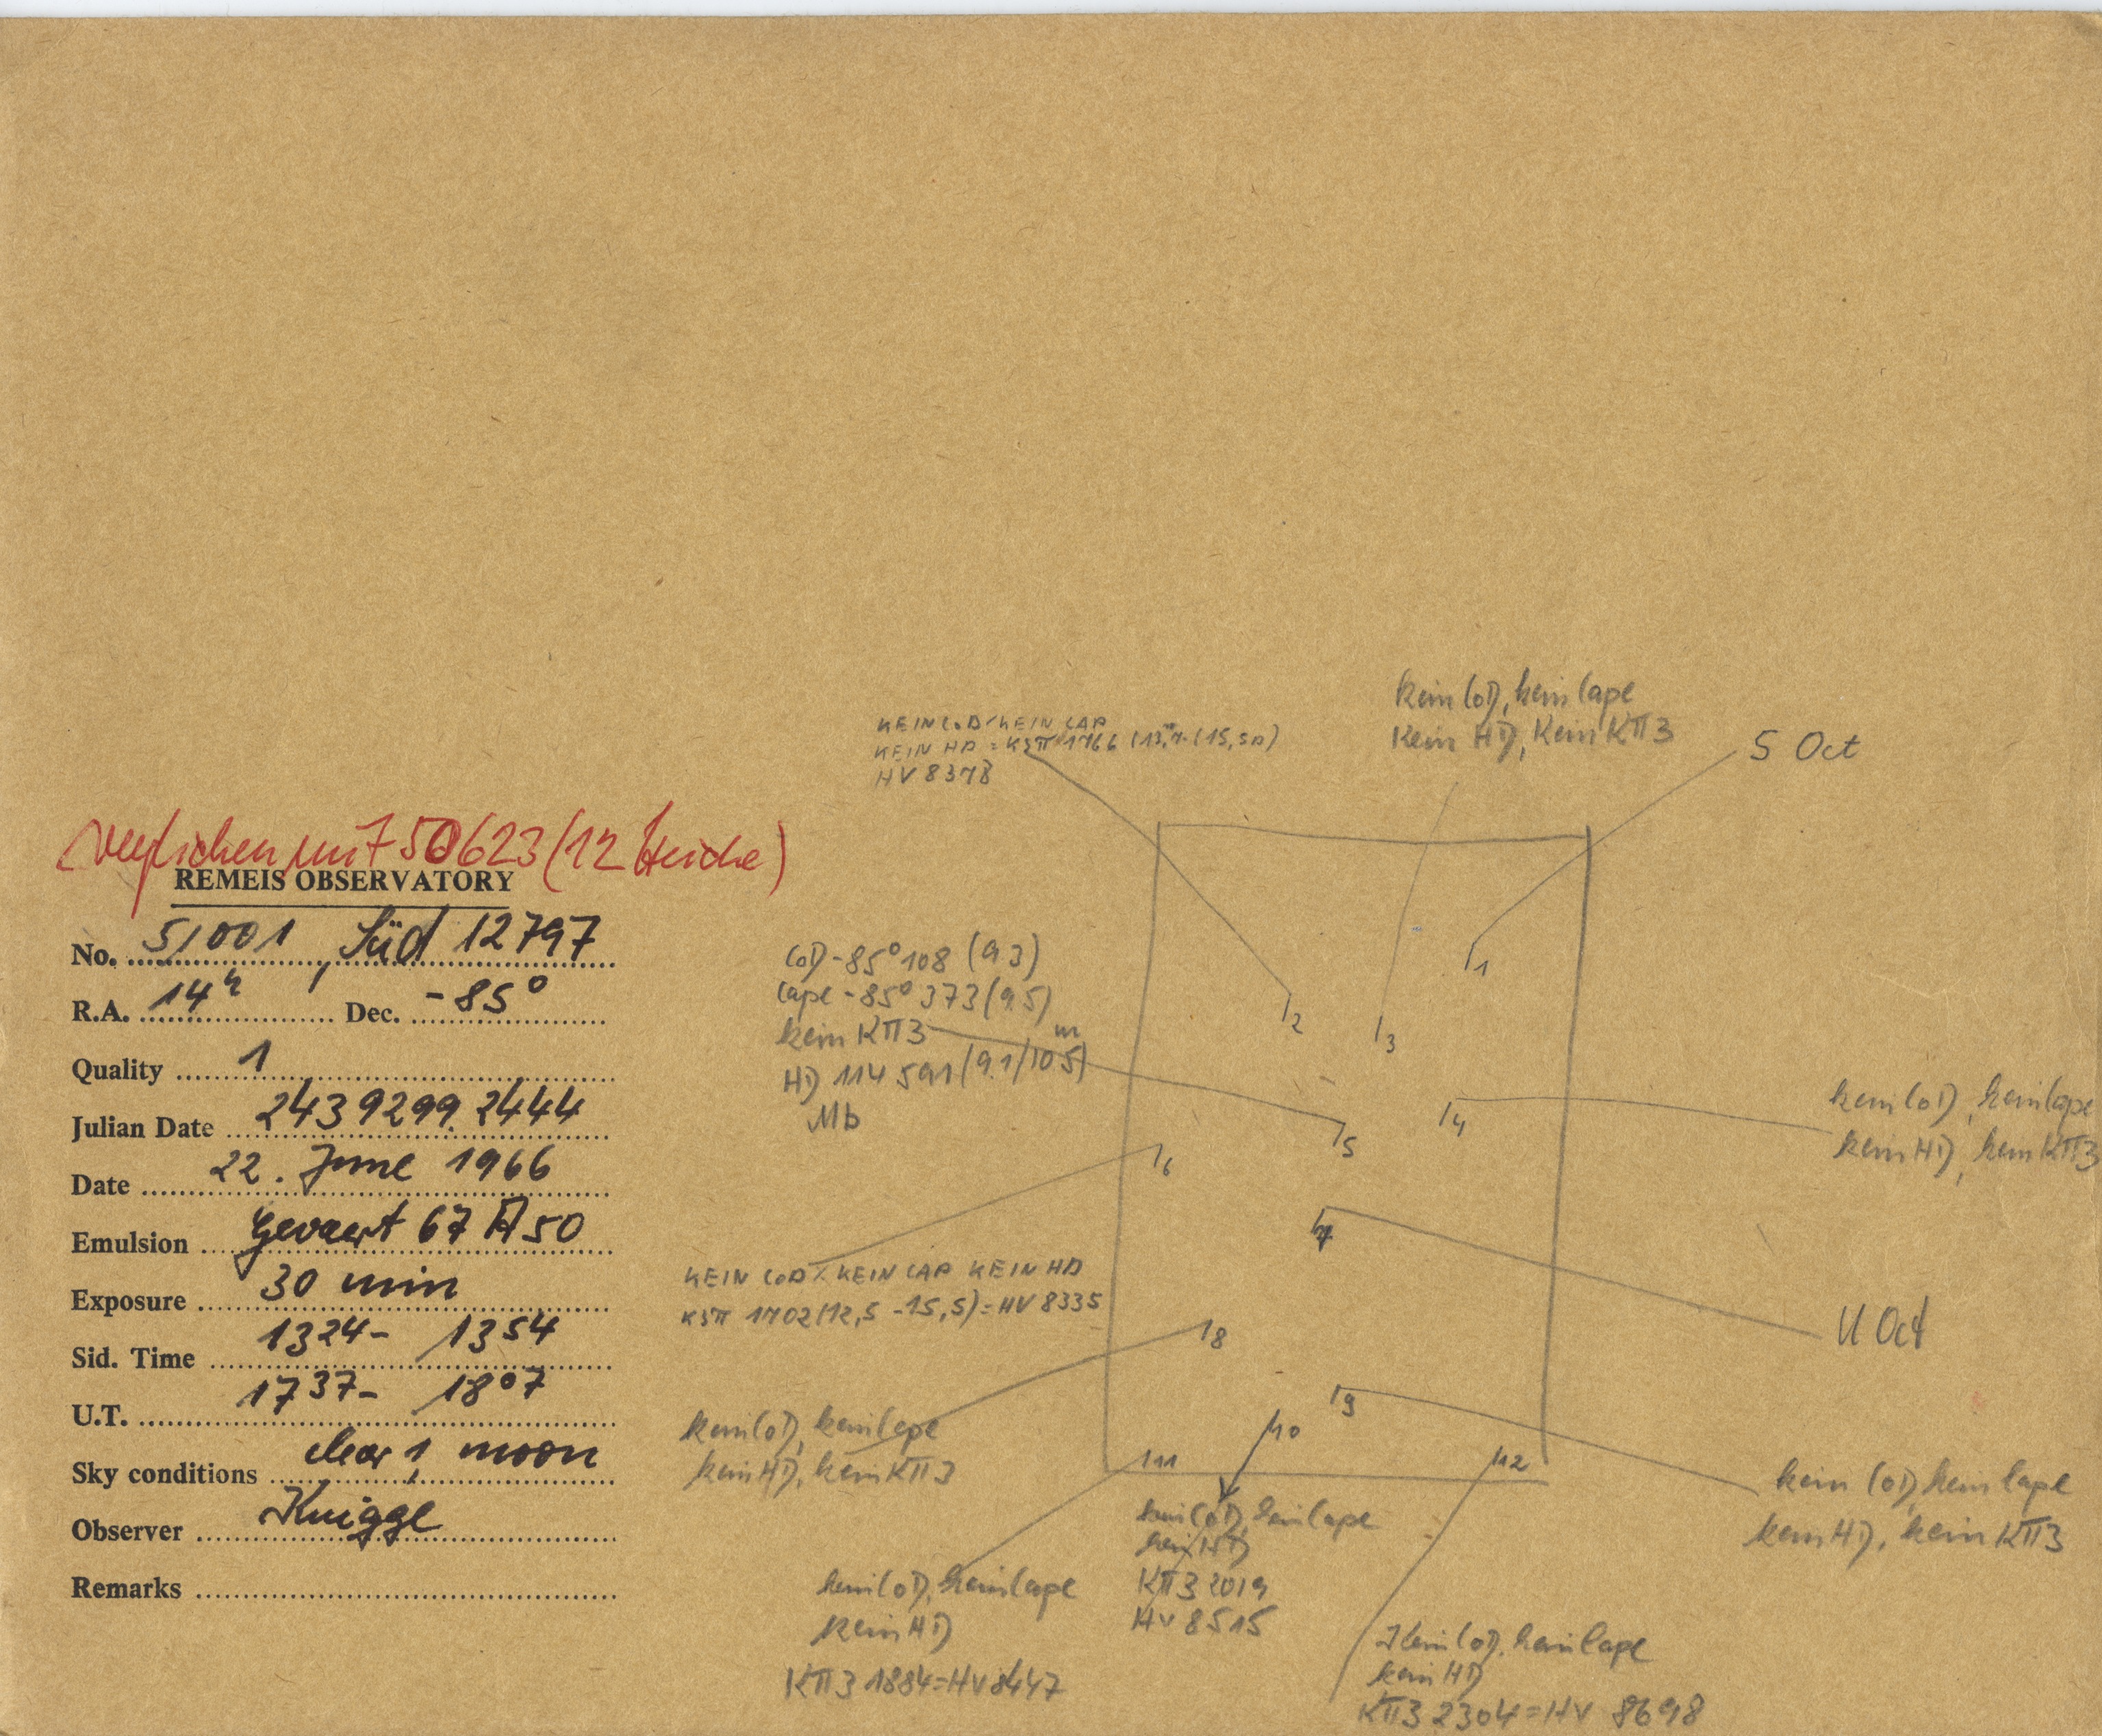 verglichen mit 50623 (12 Striche)
REMEIS OBSERVATORY
No. 51001, Süd 12797
R.A. 14h Dec. -85°
Quality 1
Julian Date 2439299.2444
Date 22. June 1966
Emulsion Gevaert 67 A 50
Exposure 30 min
Sid. Time 13 24 - 13 54
U.T. 17 37 - 18 07
Sky conditions clear, moon
Observer Knigge
Remarks
KEIN CoD / KEIN CAP
KEIN HD = K3π 1766 (13,m7-(15,5p)
HV 8378
kein CoD, kein Cape
Kein HD, Kein KΠ3
S Oct
CoD -85° 108 (9.3)
Cape -85° 373 (9.5)
kein KΠ3
HD 114591 (9.1/10.5)m
Mb
1
2
3
4
5
6
7
8
9
10
11
12
kein CoD, kein Cape
kein HD, kein KΠ3
KEIN CoD / KEIN CAP KEIN HD
K3π 1702 (12,5 -15,5) = HV 8335
U Oct
kein CoD, kein Cape
kein HD, kein KΠ3
kein CoD, kein Cape
kein HD, kein KΠ3
kein CoD, kein Cape
kein HD
KΠ3 2019
HV 8515
kein CoD, kein Cape
kein HD
KΠ3 1884 = HV 8447
Kein CoD, kein Cape
kein HD
KΠ3 2304 = HV 8698